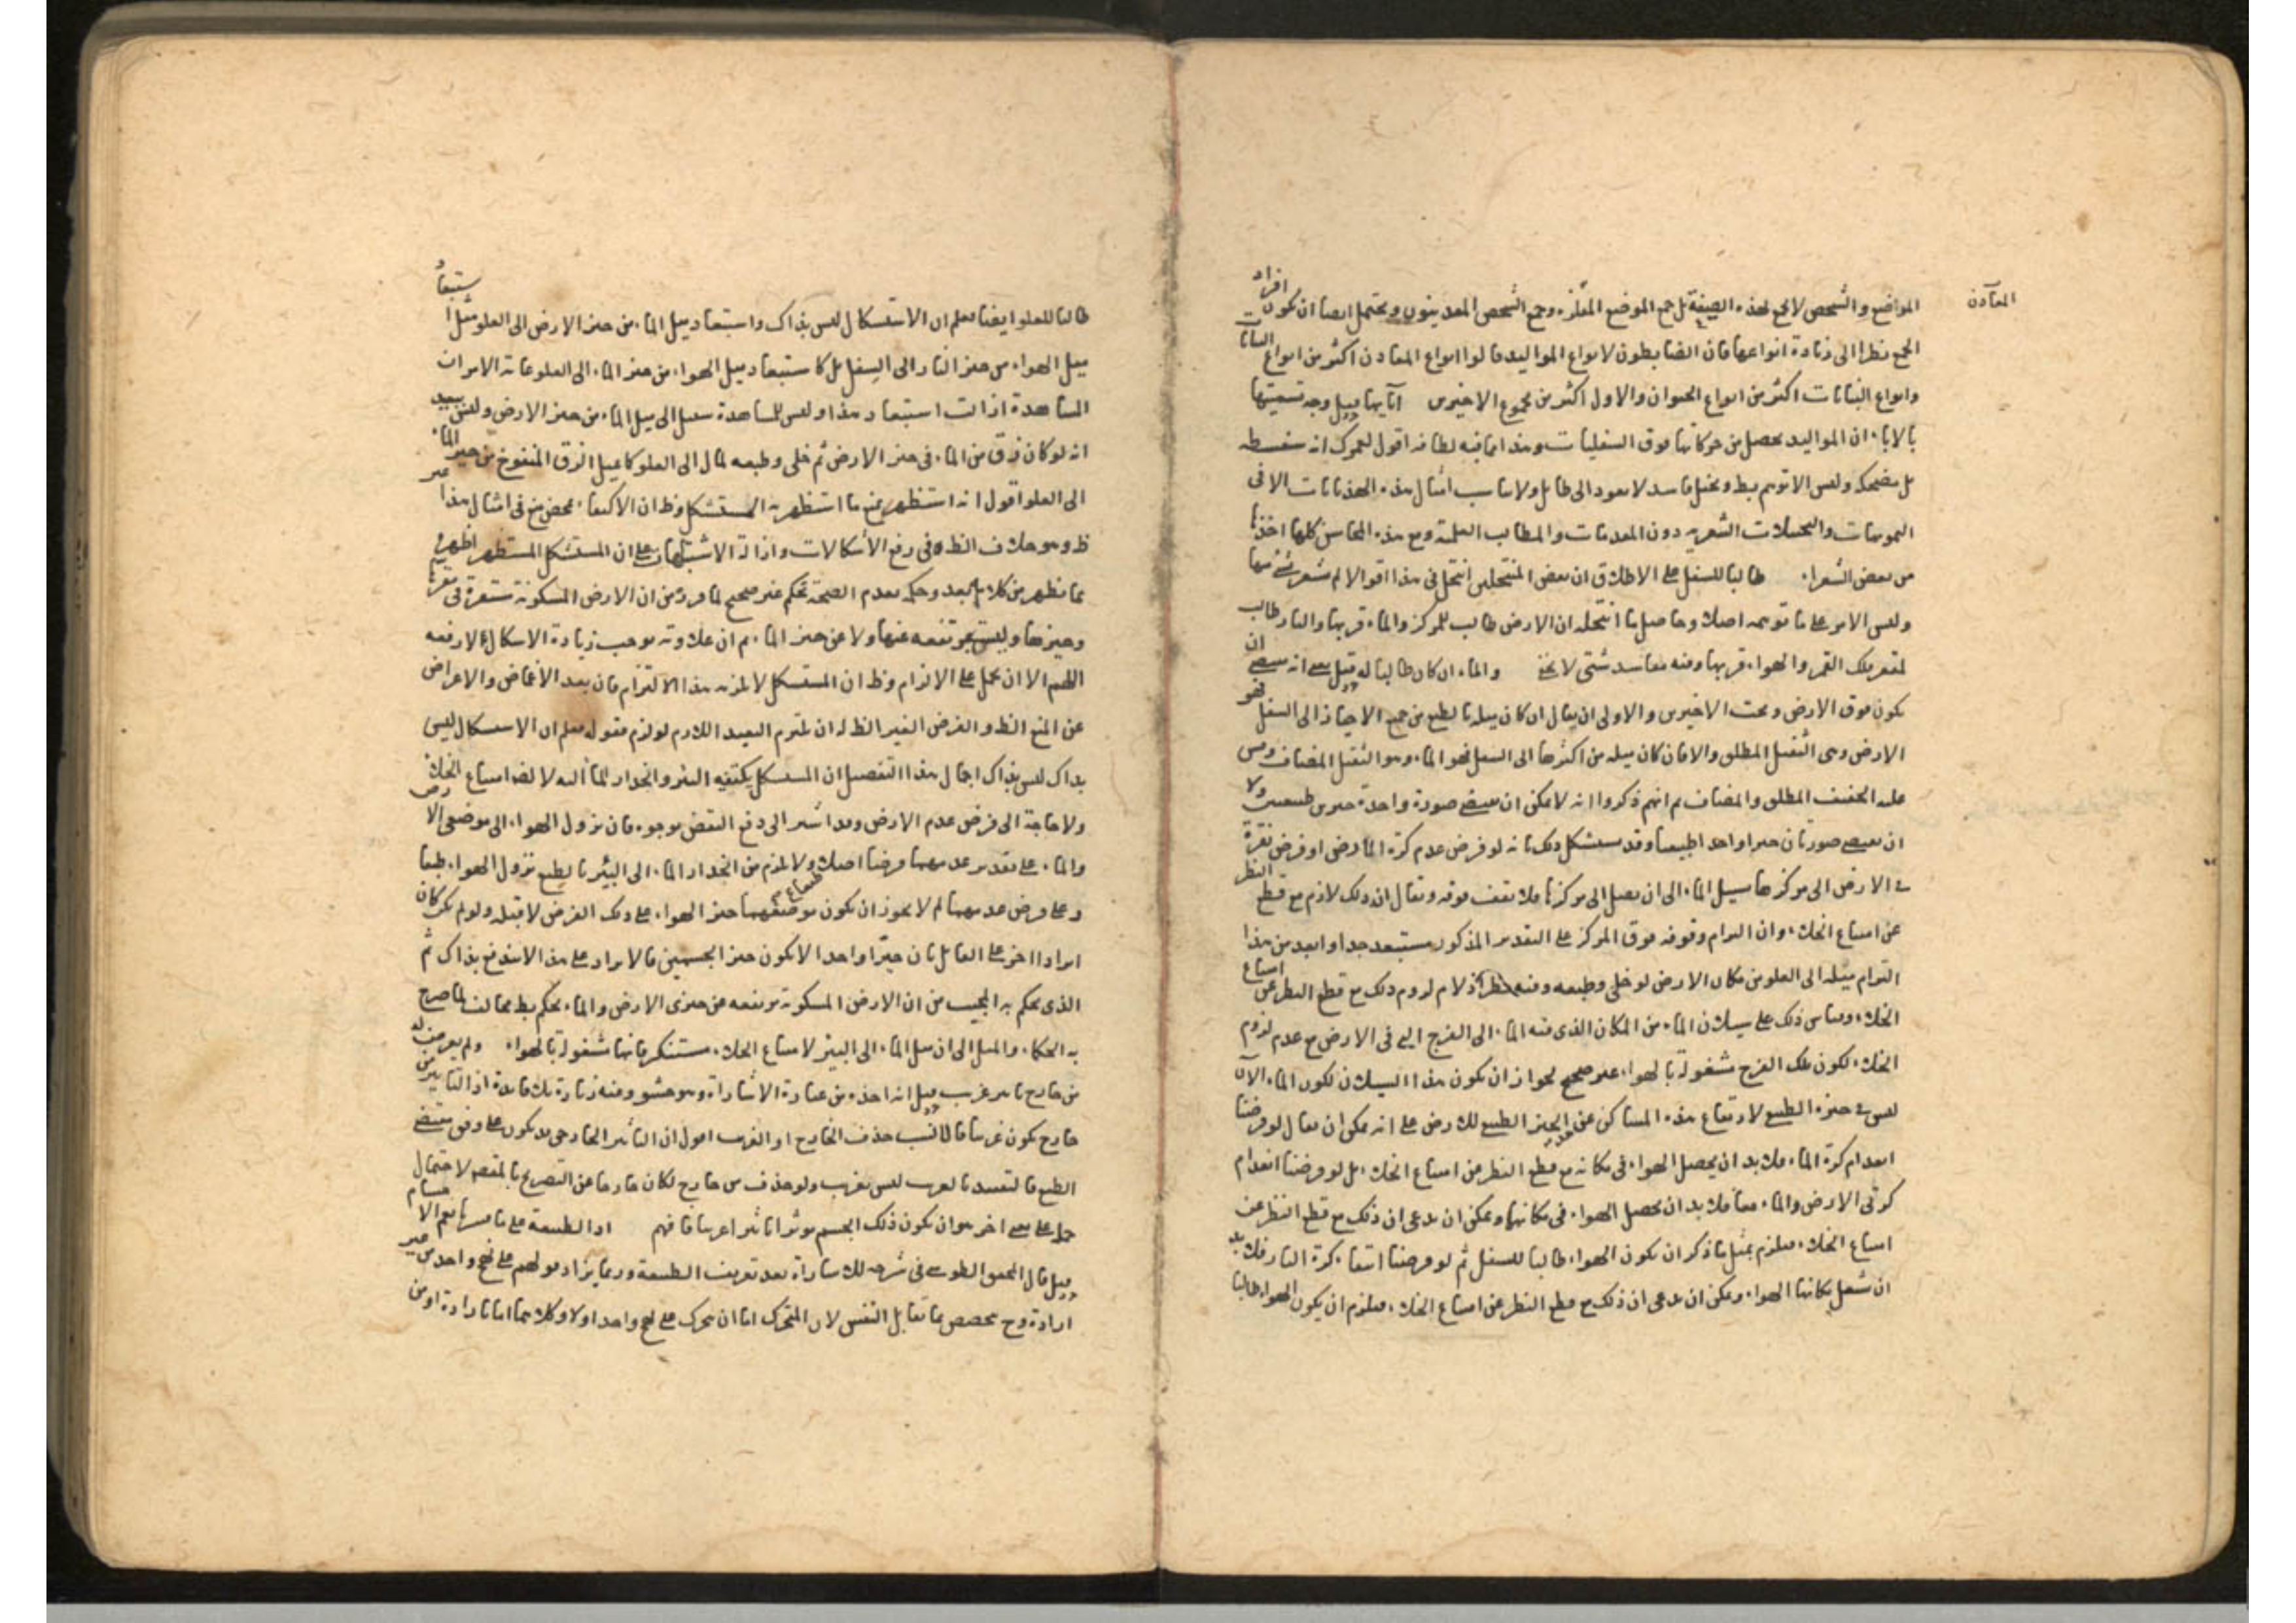 المعادن
المواضع والشخص لا يجمع بهذه الصيغة بل جمع الموضع وجمع الشخص المعدنيون ويحتمل ايضا ان يكون افراد
الجمع نظرا الى زيادة انواعها فان الضابطون لانواع المواليد قالوا انواع المعادن اكثر من انواع النباتات
وانواع النباتات اكثر من انواع الحيوان والاول اكثر من مجموع الاخيرين آبايها قيل وجه تسميتها
بالاباء ان المواليد يحصل من حركاتها فوق السفليات وهذا اقول لعمرك انه سفسطه
بل مضحكه وليس الا توهم وتخيل فاسد لا يعود الى طايل ولا يناسب امثال هذه الهذيانات الا فى
الموهمات والتخيلات الشعريه دون المقدمات والمطالب العلمية ومع هذه المحاسن كلها اخذها
من بعض الشعراء طالبا للسفل على الاطلاق ان بعض المنتحلين انتحل فى هذا اقوالا لم نشعر بشئ منها
وليس الامر على ما توهمه اصلا وحاصل ما انتحله ان الارض طالب للمركز والماء قربها والنار طالب
لمقعر فلك القمر والهواء قربها وفيه مفاسد شتى لا يخفى والماء ان كان طالبا له قيل يعنى انه يقتضى ان
يكون فوق الارض وتحت الاخيرين والاولى ان يقال ان كان ميله بالطبع من جميع الاحياز الى السفل فهو
الارض وهى الثقيل المطلق والا فان كان ميله من اكثرها الى السفل فهو الماء وهو الثقيل المضاف وقس
عليه الخفيف المطلق والمضاف ثم انهم ذكروا انه لا يمكن ان يقتضى صورة واحدة حيزين طبيعيين ولا
ان يقتضى صورتان حيزا واحدا طبيعيا وقد يستشكل ذلك بانه لو فرض عدم كرة الارض او فرض نقرة
فى الارض الى مركزها يسيل الماء الى ان يصل الى مركزها فلا يقف فوقه ويقال ان ذلك لازم مع قطع النظر
عن امتناع الخلاء وان التزام وقوفه فوق المركز على التقدير المذكور مستبعد جدا وابعد من هذا
التزام ميله الى العلو من مكان الارض لو خلى وطبعه وفيه نظر اذ لا نم لزوم ذلك مع قطع النظر عن امتناع
الخلاء وقياس ذلك على سيلان الماء من المكان الذى فيه الماء الى الفرج التى فى الارض مع عدم لزوم
الخلاء لكون تلك الفرج مشغولة بالهواء غير صحيح لجواز ان يكون هذا السيلان لكون الماء الآن
ليس فى حيزه الطبيعى لارتفاع هذه المساكن عن الحيز الطبيعى للارض على انه يمكن ان يقال لو فرضنا
انعدام كرة الماء فلا بد ان يحصل الهواء فى مكانه مع قطع النظر عن امتناع الخلاء بل لو فرضنا انعدام
كرتى الارض والماء معا فلا بد ان يحصل الهواء فى مكانها ويمكن ان يدعى ان ذلك مع قطع النظر عن
امتناع الخلاء فيلزم بمثل ما ذكر ان يكون الهواء طالبا للسفل ثم لو فرضنا انتفاء كرة النار فلا بد
ان يشغل مكانها الهواء ويمكن ان يدعى ان ذلك مع قطع النظر عن امتناع الخلاء فيلزم ان يكون الهواء طالبا
طالبا للعلو ايضا فعلم ان الاستشكال ليس بذاك واستبعاد ميل الماء من حيز الارض الى العلو مثل استبعاد
ميل الهواء من حيز النار الى السفل بل كاستبعاد ميل الهواء من حيز الماء الى العلو غاية الامر ان
المشاهدة ازالت استبعاد هذا وليس للمشاهدة سبيل الى ميل الماء من حيز الارض وليس ببعيد
انه لو كان زق من الماء فى حيز الارض ثم خلى وطبعه لمال الى العلو كما يميل الزق المنفوخ من حيز الماء
الى العلو اقول انه استظهر بمنع ما استظهر به المستشكل وظ ان الاكتفاء بمحض منع فى امثال هذا غير
ظ وهو خلاف الظ فى رفع الاشكالات وازالة الاشتباهات على ان المستشكل المستظهر
بما يظهر من كلامه البعد وحكمه بعدم الصحة تحكم غير صحيح لما من ان الارض المسكونة مستقرة فى مقرها
وحيزها وليست مرتفعه عنها ولا عن حيز الماء ثم ان علاوته موجب زيادة الاشكال لا رفعه
اللهم الا ان يحمل على الالزام وظ ان المستشكل لا يلزمه هذا الالتزام فان بعد الاغماض والاعراض
عن المنع الظ والفرض الغير الظ له ان يلتزم البعيد اللازم لو لزم فقوله فعلم ان الاستشكال ليس
بذاك ليس بذاك اجمال هذا التفصيل ان المستشكل يكتفيه البئر وانحدار الماء اليه لا لضـ امتناع الخلاء
ولا حاجة الى فرض عدم الارض وقد اشير الى دفع النقض بوجوه فان نزول الهواء الى موضعى الارض
والماء على تقدير عدمهما فرضنا اصلا ولا يلزم من انحدار الماء الى البئر بالطبع نزول الهواء طبعا
وعلى فرض عدمهما لم لا يجوز ان يكون موضعهما حيز الهواء على ذلك الفرض لا قبله ولو لم يكن كان
ايرادا اخر على القائل بان حيزا واحدا لا يكون حيز الجسمين فالايراد على هذا لا يندفع بذاك ثم
الذى يحكم به المجيب من ان الارض المسكونة مرتفعه عن حيزى الارض والماء تحكم مخالف لما صرح
به الحكماء والميل الى ان ميل الماء الى البئر لامتناع الخلاء مستنكر فانها مشغولة بالهواء
من خارج تاثير غريب قيل انه اخذه من عبارة الاشارات وهو حشو وفيه زيادة بلا فائدة اذ التاثير من
خارج يكون غريبا فالانسب حذف الخارج او الغريب اقول ان التاثير الخارجى قد يكون على وفق مقتضى
الطبع فالتقييد بالغريب ليس بغريب ولو حذف من خارج لكان خارجا عن التصريح بالمقصـ لاحتمال
حمله على معنى اخر هو ان يكون ذلك الجسم موثرا تاثيرا غريبا فافهم اذ الطبيعة على ما فسرناها يعم الاجسام
قيل قال المحقق الطوسى فى شرحه للاشارات بعد تعريف الطبيعة وربما يزاد قولهم على نهج واحد من غير
ارادة وح يتخصص بما يقابل النفس لان المتحرك اما ان يتحرك على نهج واحد او لا وكلاهما اما بارادة او من